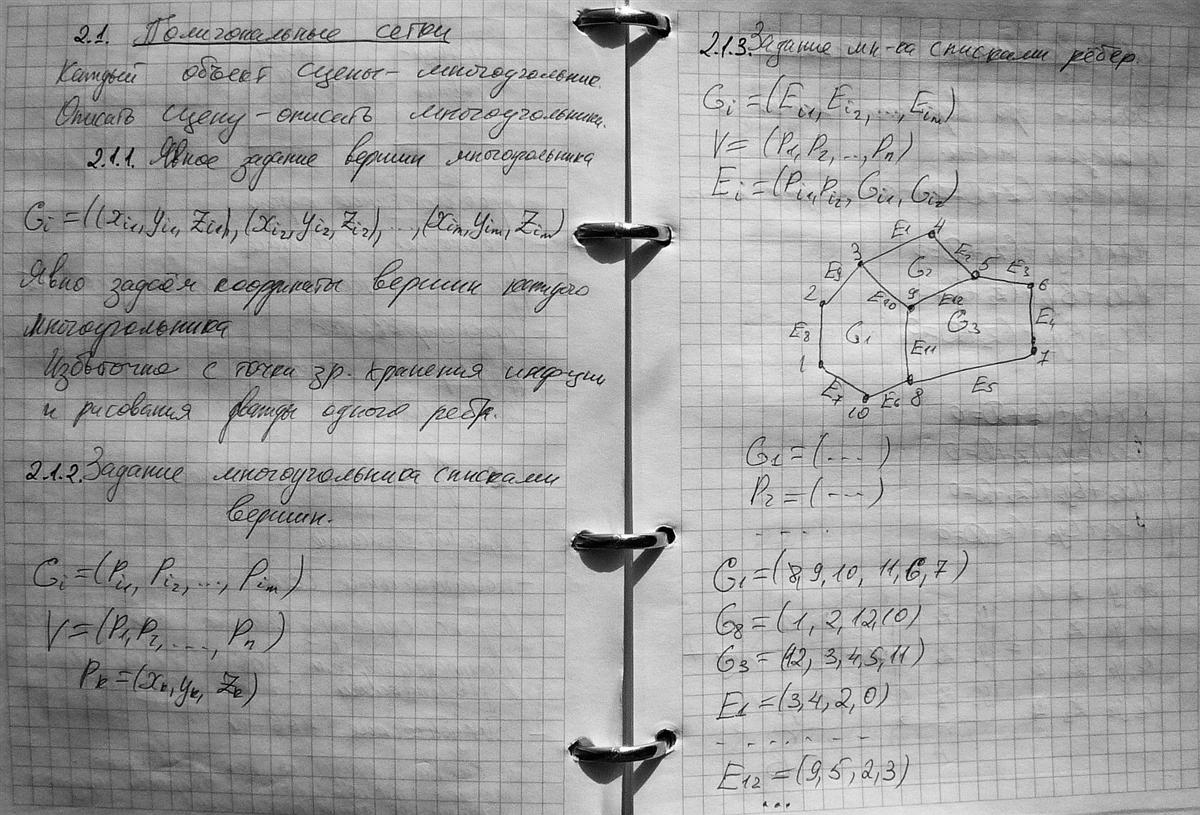 2.1. Полигональные сетки
Каждый объект сцены - многоугольник.
Описать сцену - описать многоугольники.
2.1.1. Явное задание вершин многоугольника
Gi = ((xi1, yi1, zi1), (xi2, yi2, zi2), ..., (xim, yim, zim)
Явно задаём координаты вершин каждого
многоугольника
Избыточно с точки зр. хранения инфции
и рисования дважды одного ребр.
2.1.2. Задание многоугольника списками
вершин.
Gi = (Pi1, Pi2, ..., Pim)
V = (P1, P2, ...., Pn)
Pk = (xk, yk, zk)
2.1.3. Задание мн-ка списками рёбер.
Gi = (Ei1, Ei2, ..., Eim)
V = (P1, P2, ..., Pn)
Ei = (Pi1, Pi2, Gi1, Gi2)
E1 4
3 E2
E9 G2 5 E3
2 E10 9 E12 6
E8 G1 G3 E4
E11
1 7
E7 E6 8 E5
10
G1 = (---)
P2 = (---)
- - - -
G1 = (8, 9, 10, 11, 6, 7)
G8 = (1, 2, 12, 10)
G3 = (12, 3, 4, 5, 11)
E1 = (3, 4, 2, 0)
- - - - - - - -
E12 = (9, 5, 2, 3)
...